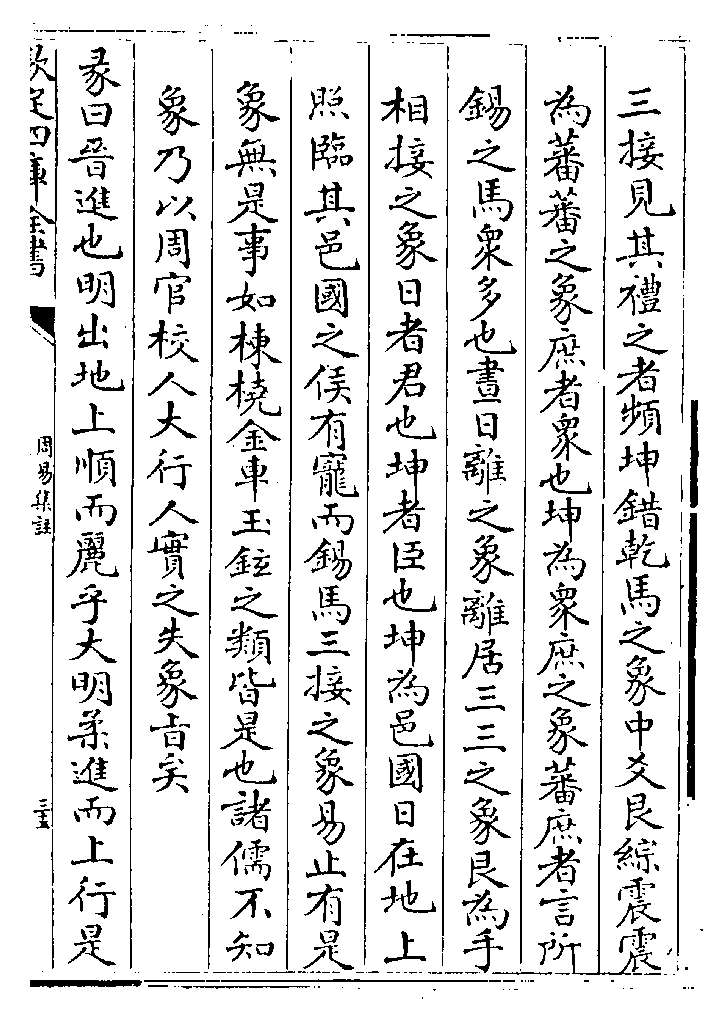 三接見其禮之者頻坤錯乾馬之象中爻艮綜震震
為蕃蕃之象庶者衆也坤為衆庶之象蕃庶者言所
錫之馬衆多也晝日離之象離居三三之象艮為手
相接之象日者君也坤者臣也坤為邑國日在地上
照臨其邑國之侯有寵而錫馬三接之象易止有是
象無是事如棟橈金車玉鉉之類皆是也諸儒不知
象乃以周官校人大行人實之失象旨矣
彖曰晉進也明出地上順而麗乎大明柔進而上行是
欽定四庫全書
周易集註
三五